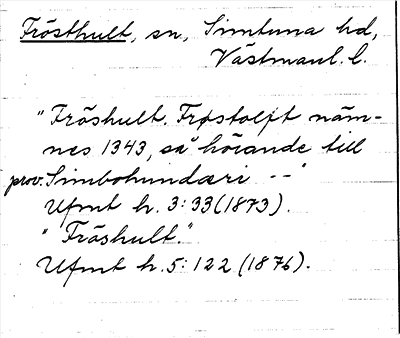 Frösthult, sn, Simtuna hd,
Västmanl. l.
"Fröshult. Frøstolft näm-
nes 1343, så hörande till
prov. Simbohundæri --"
Ufmt h. 3:33 (1873).
"Fröshult."
Ufmt h. 5:122 (1876).